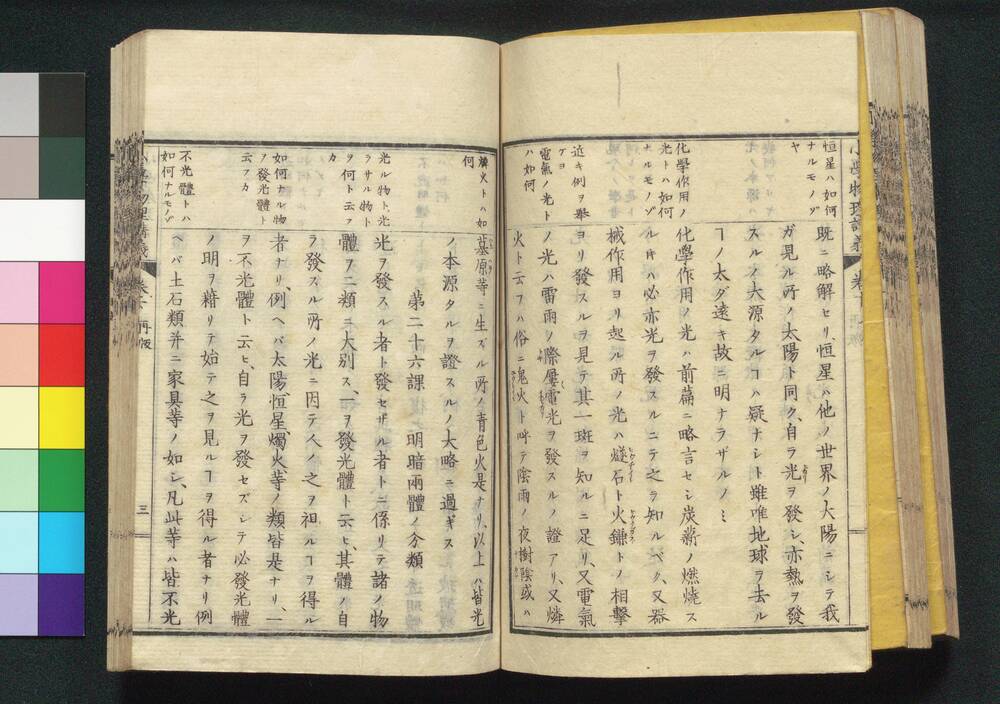 恒星ハ如何
ナルモノゾ
ヤ
化學作用ノ
光トハ如何
ナルモノゾ
近キ例ヲ舉
ゲヨ
電氣ノ光ト
ハ如何
既ニ略解セリ、恒星ハ他ノ世界ノ太陽ニシテ我
ガ見ル所ノ太陽ト同ク、自ラ光ヲ發シ、亦熱ヲ發
スルノ大源タルヿハ疑ナシト雖唯地球ヲ去ル
ヿノ太ダ遠キ故ニ明ナラザルノミ
化學作用ノ光ハ前篇ニ略言セシ炭薪ノ燃焼ス
ルヰハ必亦光ヲ發スルニテ之ヲ知ルベク、又器
械作用ヨリ起ル所ノ光ハ燧石ト火鎌トノ相擊
ヨリ發スルヲ見テ其一斑ヲ知ルニ足リ、又電氣
ノ光ハ雷雨ノ際屢電光ヲ發スルノ證アリ、又燐
火ト云フハ俗ニ鬼火ト呼テ陰雨ノ夜樹陰或ハ
燐火トハ如
何
光ル物ト、光
ラサル物ト
ヲ何ト云フ
カ
如何ナル物
ヲ發光體ト
云フカ
不光體トハ
如何ナルモノゾ
墓原等ニ生ズル所ノ青色火是ナリ、以上ハ皆光
ノ本源タルヲ證スルノ大略ニ過ギス
第二十六課 明暗兩體ノ分類
光ヲ發スル者ト發セザル者トニ係リテ諸ノ物
體ヲ二類ニ大別ス、一ヲ發光體ト云ヒ、其體ノ自
ラ發スル所ノ光ニ因テ人ノ之ヲ視ルヿヲ得ル
者ナリ、例ヘバ太陽、恒星、燭火等ノ類皆是ナリ、一
ヲ不光體ト云ヒ、自ラ光ヲ發セズシテ必發光體
ノ明ヲ藉リテ始テ之ヲ見ルヿヲ得ル者ナリ例
ヘバ土石類并ニ家具等ノ如シ、凡此等ハ皆不光
三